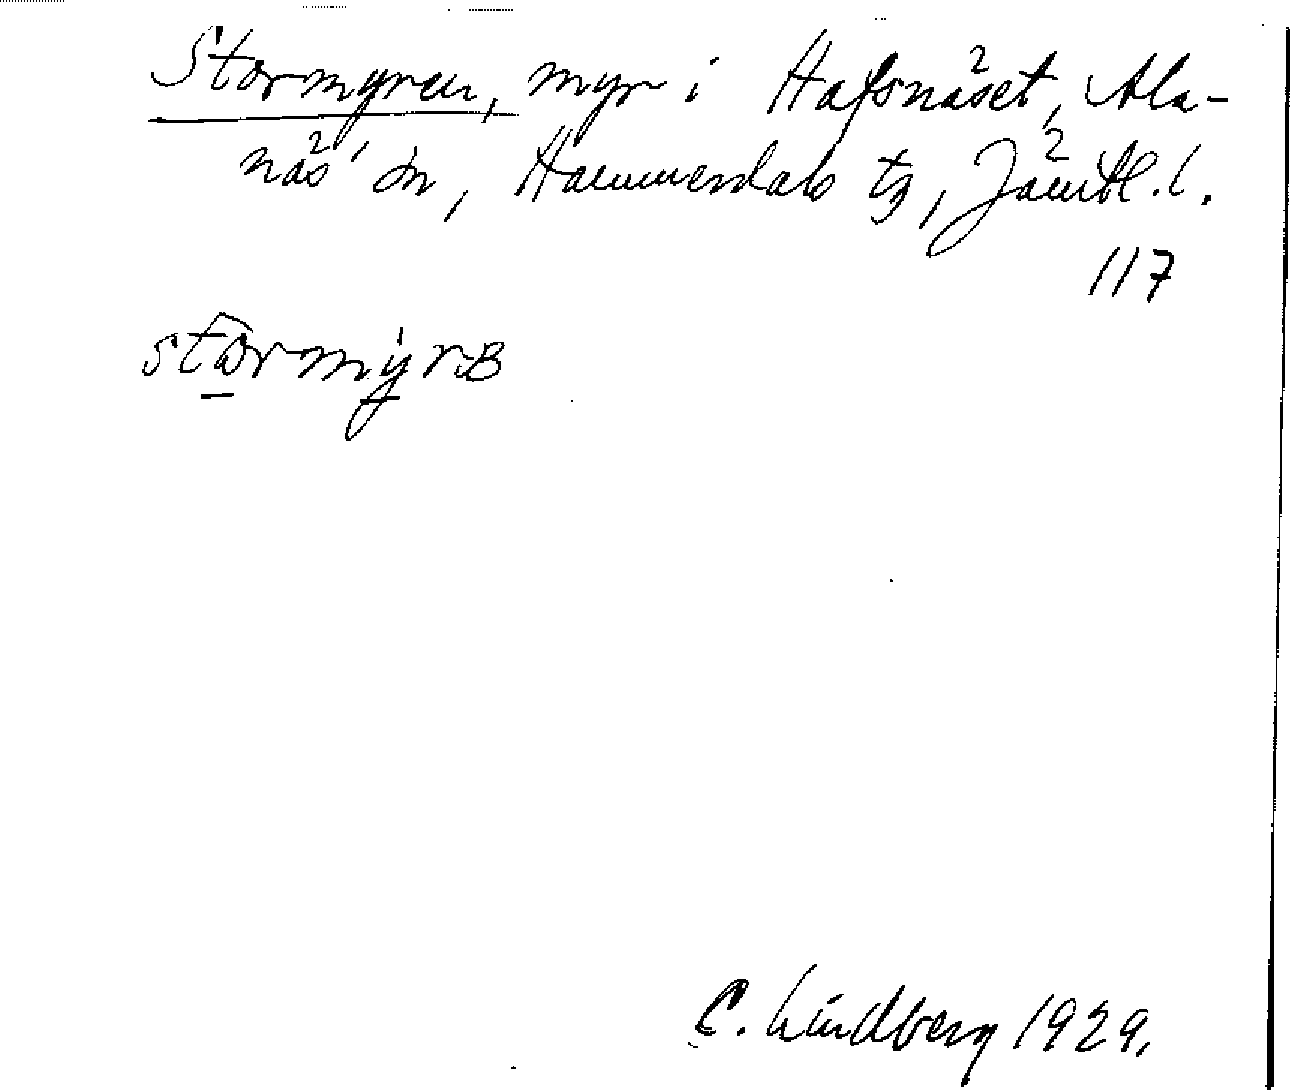 Stormyren, myr i Hafsnäset, Ala-
näs' sn, Hammerdals tg, Jämtl. l.
117
stormyrB
C. Lindberg 1929.